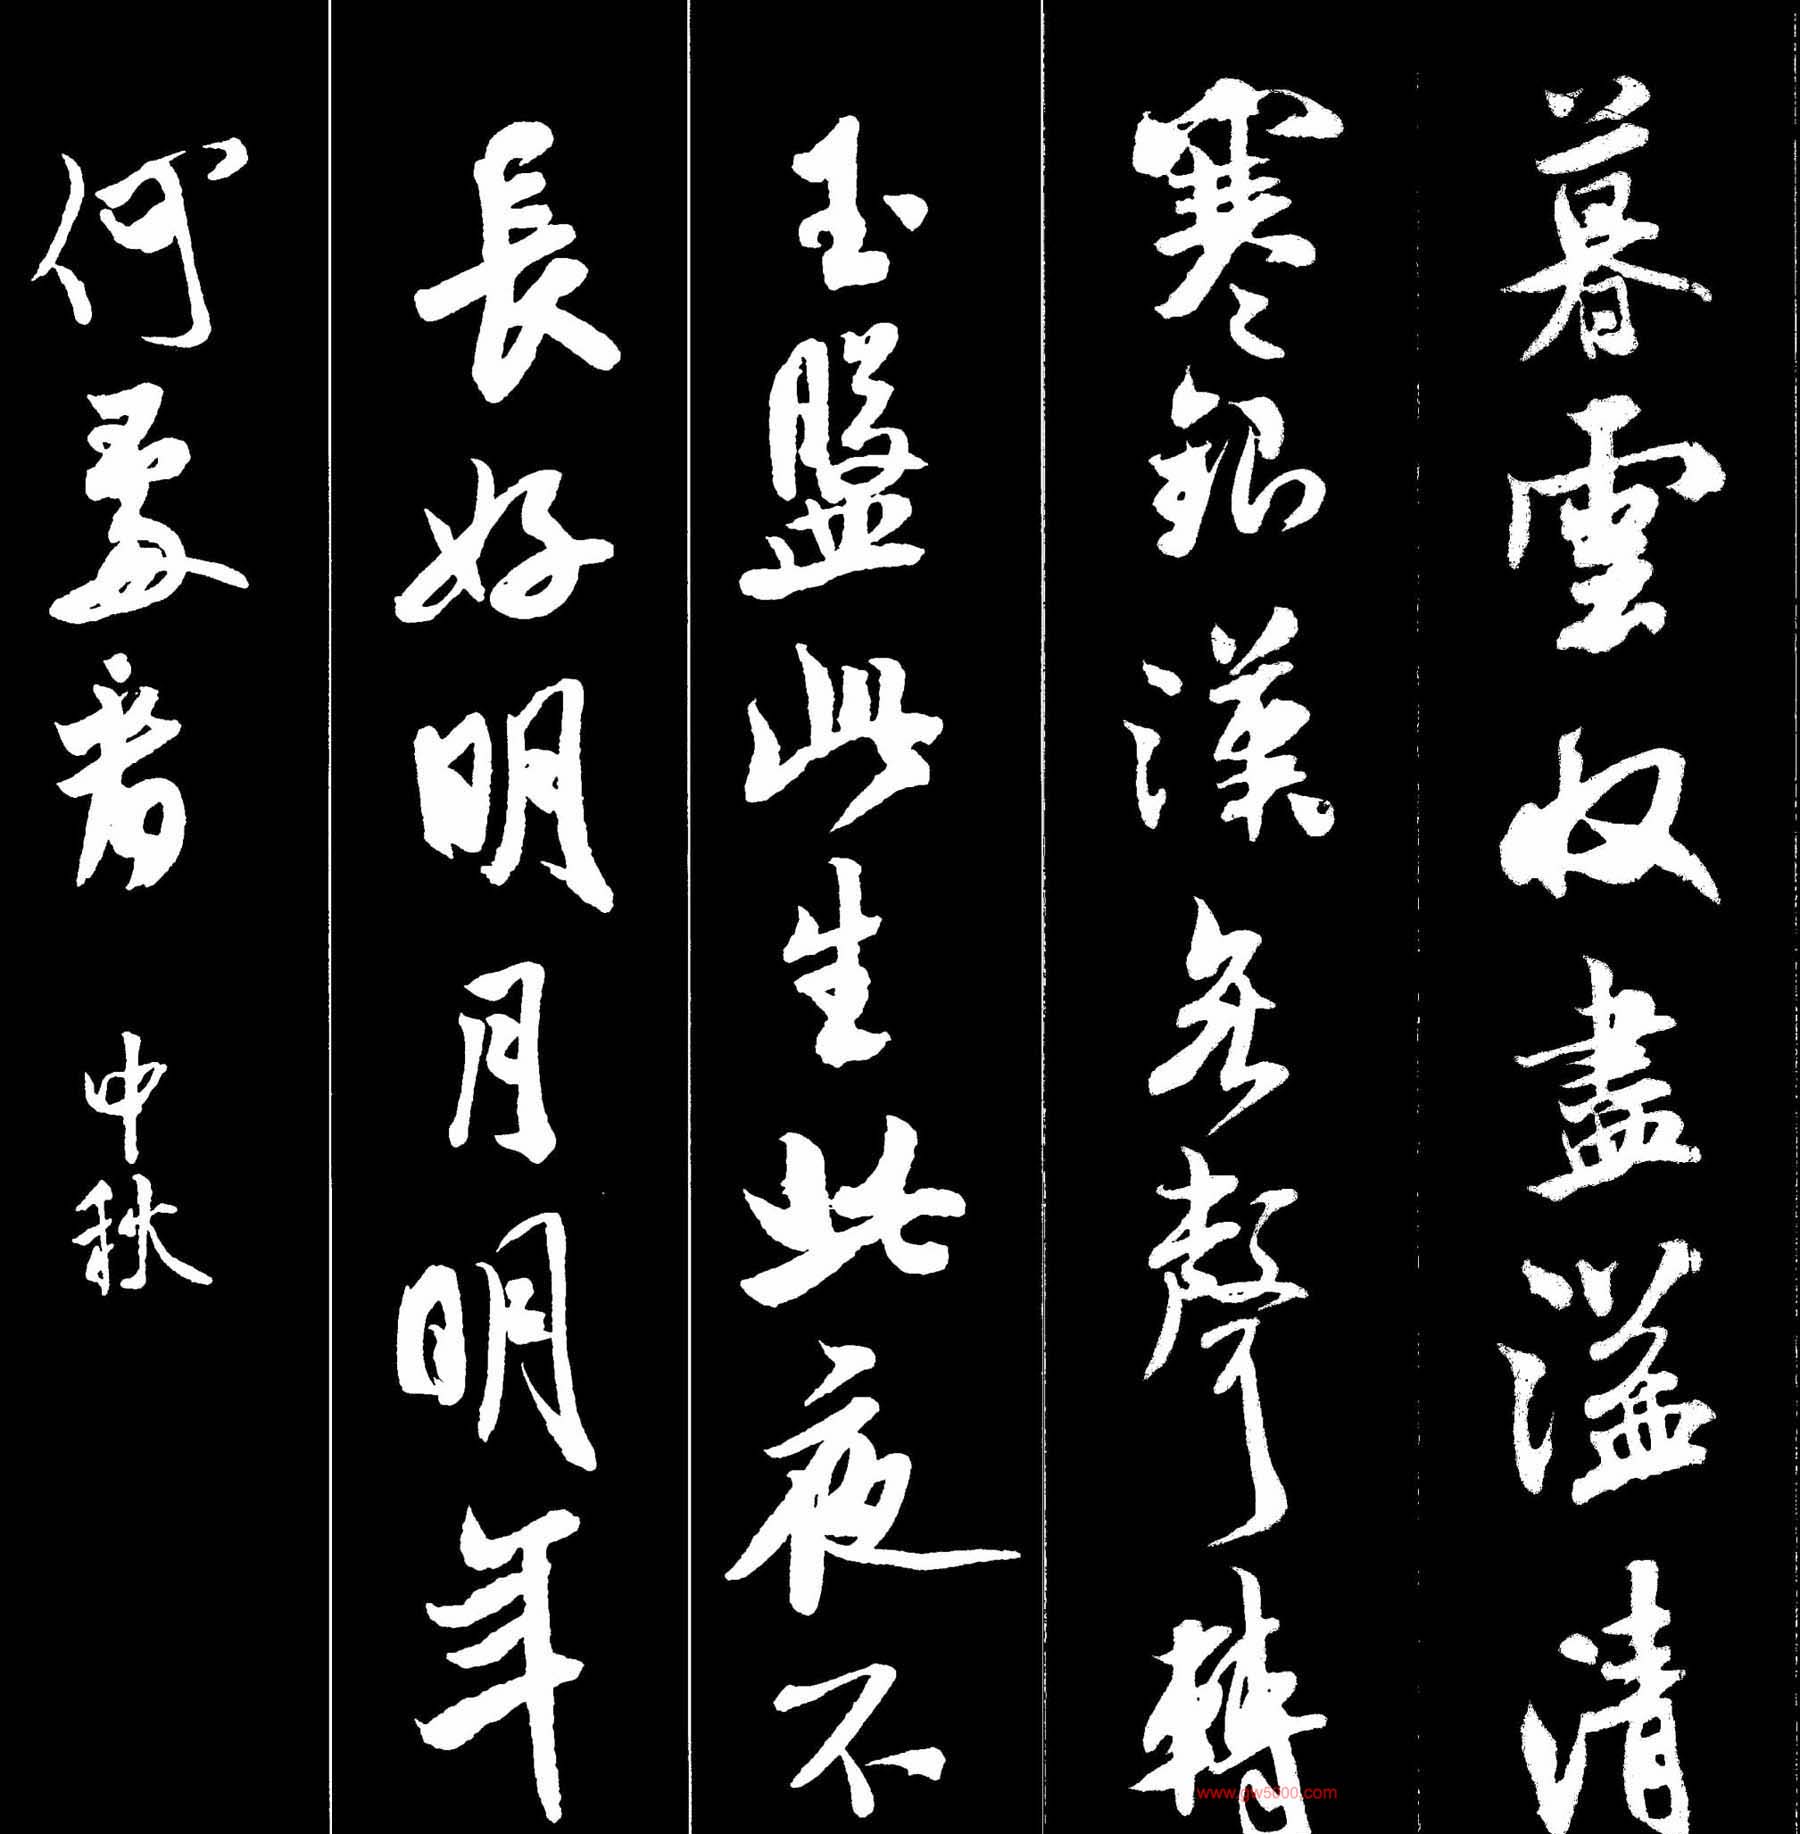 暮雲収盡溢清
寒銀漢無聲轉
玉盤此生此夜不
長好明月明年
何處看 中秋
www.gw5600.com